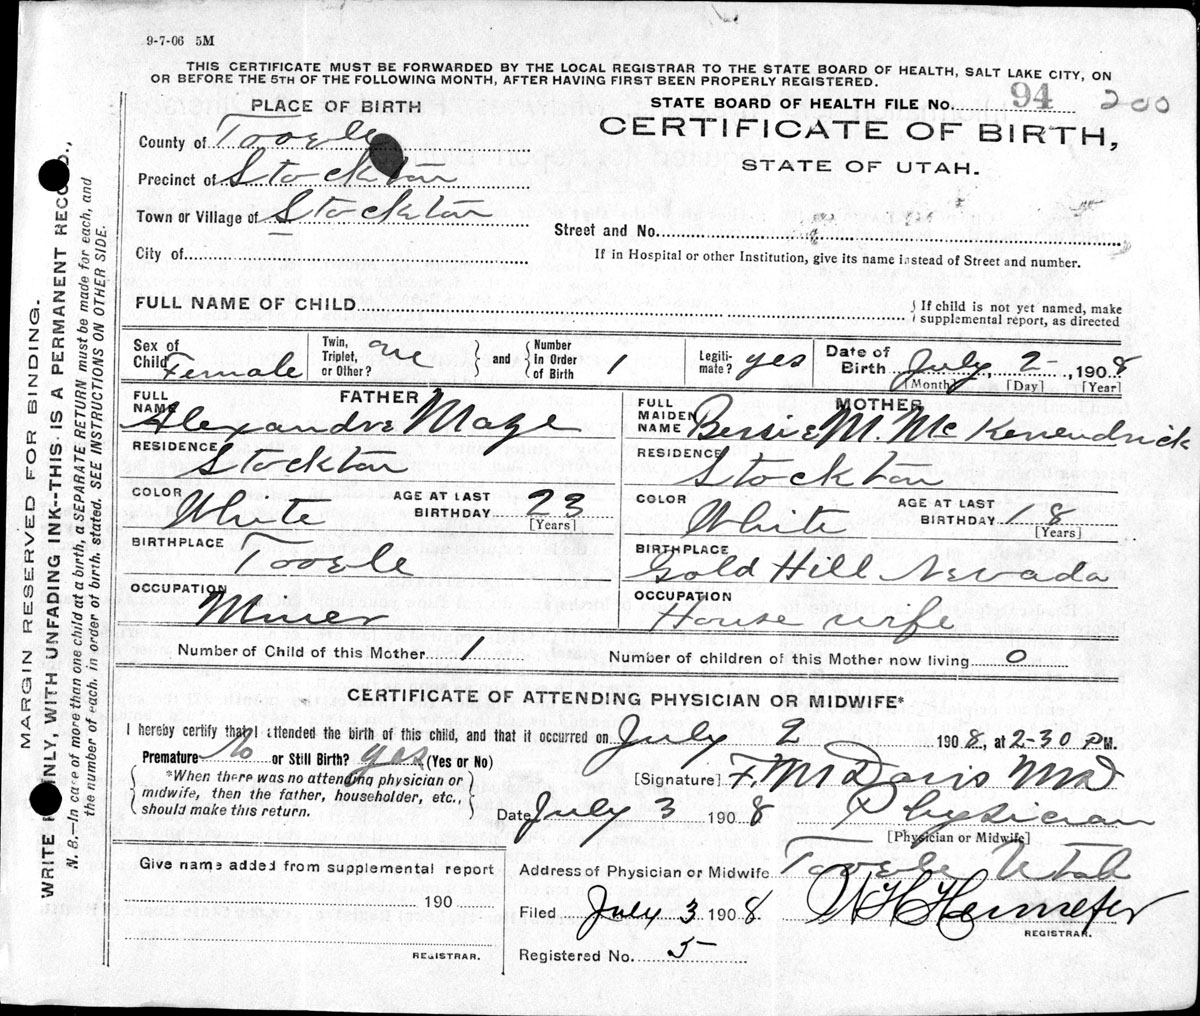 9-7-06 5M
THIS CERTIFICATE MUST BE FORWARDED BY THE LOCAL REGISTRAR TO THE STATE BOARD OF HEALTH, SALT LAKE CITY, ON
OR BEFORE THE 5TH OF THE FOLLOWING MONTH, AFTER HAVING FIRST BEEN PROPERLY REGISTERED.
PLACE OF BIRTH
STATE BOARD OF HEALTH FILE NO. 94 200
CERTIFICATE OF BIRTH,
STATE OF UTAH.
County of Tooele
Precinct of Stockton
Town or Village of Stockton
Street and No.
City of
If in Hospital or other Institution, give its name instead of Street and number.
FULL NAME OF CHILD
{ If child is not yet named, make
supplemental report, as directed
Sex of Child Female
Twin, Triplet, or Other? one } and { Number in Order of Birth 1
Legitimate? yes
Date of Birth July 2, 1908
[Month] [Day] [Year]
FATHER
FULL NAME Alexandre Maze
RESIDENCE Stockton
COLOR White AGE AT LAST BIRTHDAY 23 [Years]
BIRTHPLACE Tooele
OCCUPATION Miner
MOTHER
FULL MAIDEN NAME Bessie M. McKenendrick
RESIDENCE Stockton
COLOR White AGE AT LAST BIRTHDAY 18 [Years]
BIRTHPLACE Gold Hill Nevada
OCCUPATION House wife
Number of Child of this Mother 1 Number of children of this Mother now living 0
CERTIFICATE OF ATTENDING PHYSICIAN OR MIDWIFE*
I hereby certify that I attended the birth of this child, and that it occurred on July 2 1908, at 2-30 PM.
Premature No or Still Birth? yes (Yes or No)
{ *When there was no attending physician or
midwife, then the father, householder, etc.,
should make this return. }
[Signature] F. M. Davis MD
Date July 3 1908 Physician
[Physician or Midwife]
Give name added from supplemental report
190
REGISTRAR.
Address of Physician or Midwife Tooele Utah
Filed July 3 1908
REGISTRAR.
Registered No. 5
MARGIN RESERVED FOR BINDING.
WRITE ONLY, WITH UNFADING INK--THIS IS A PERMANENT RECORD.,
N. B.—In case of more than one child at a birth, a SEPARATE RETURN must be made for each, and
the number of each, in order of birth, stated. SEE INSTRUCTIONS ON OTHER SIDE.